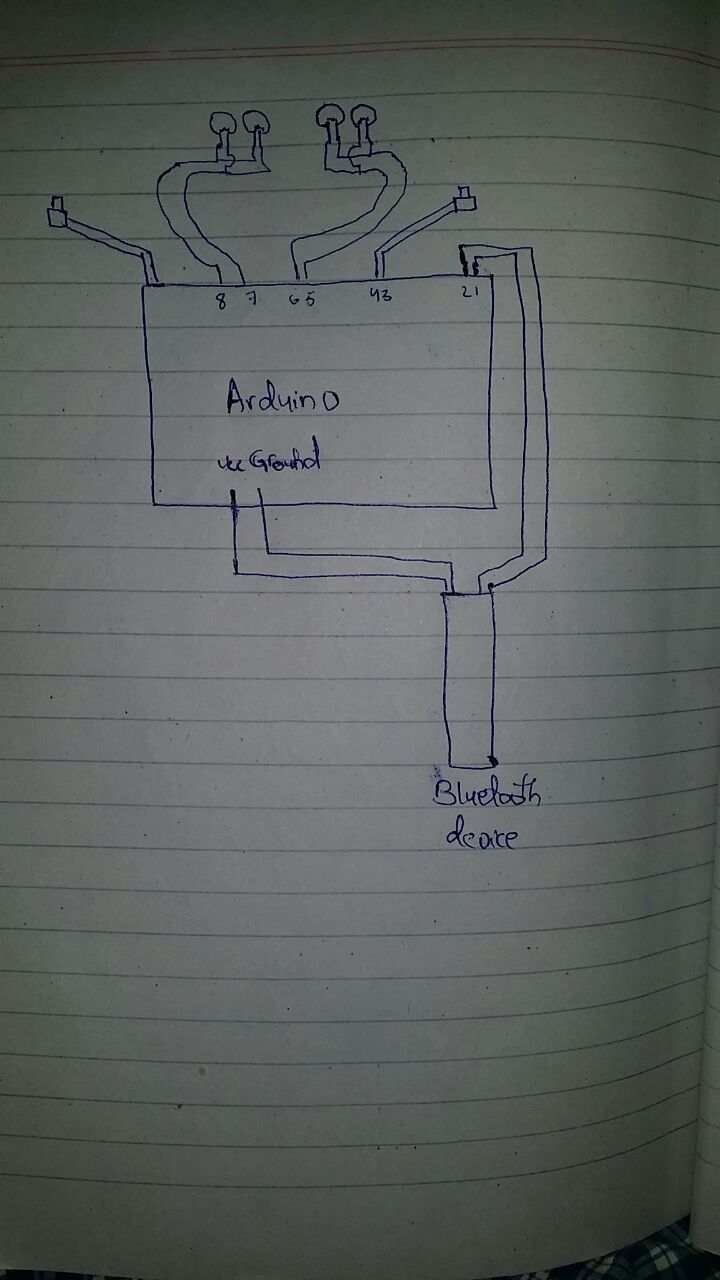 8 7 6 5 43 21
Arduino
vcc Ground
Bluetooth
device